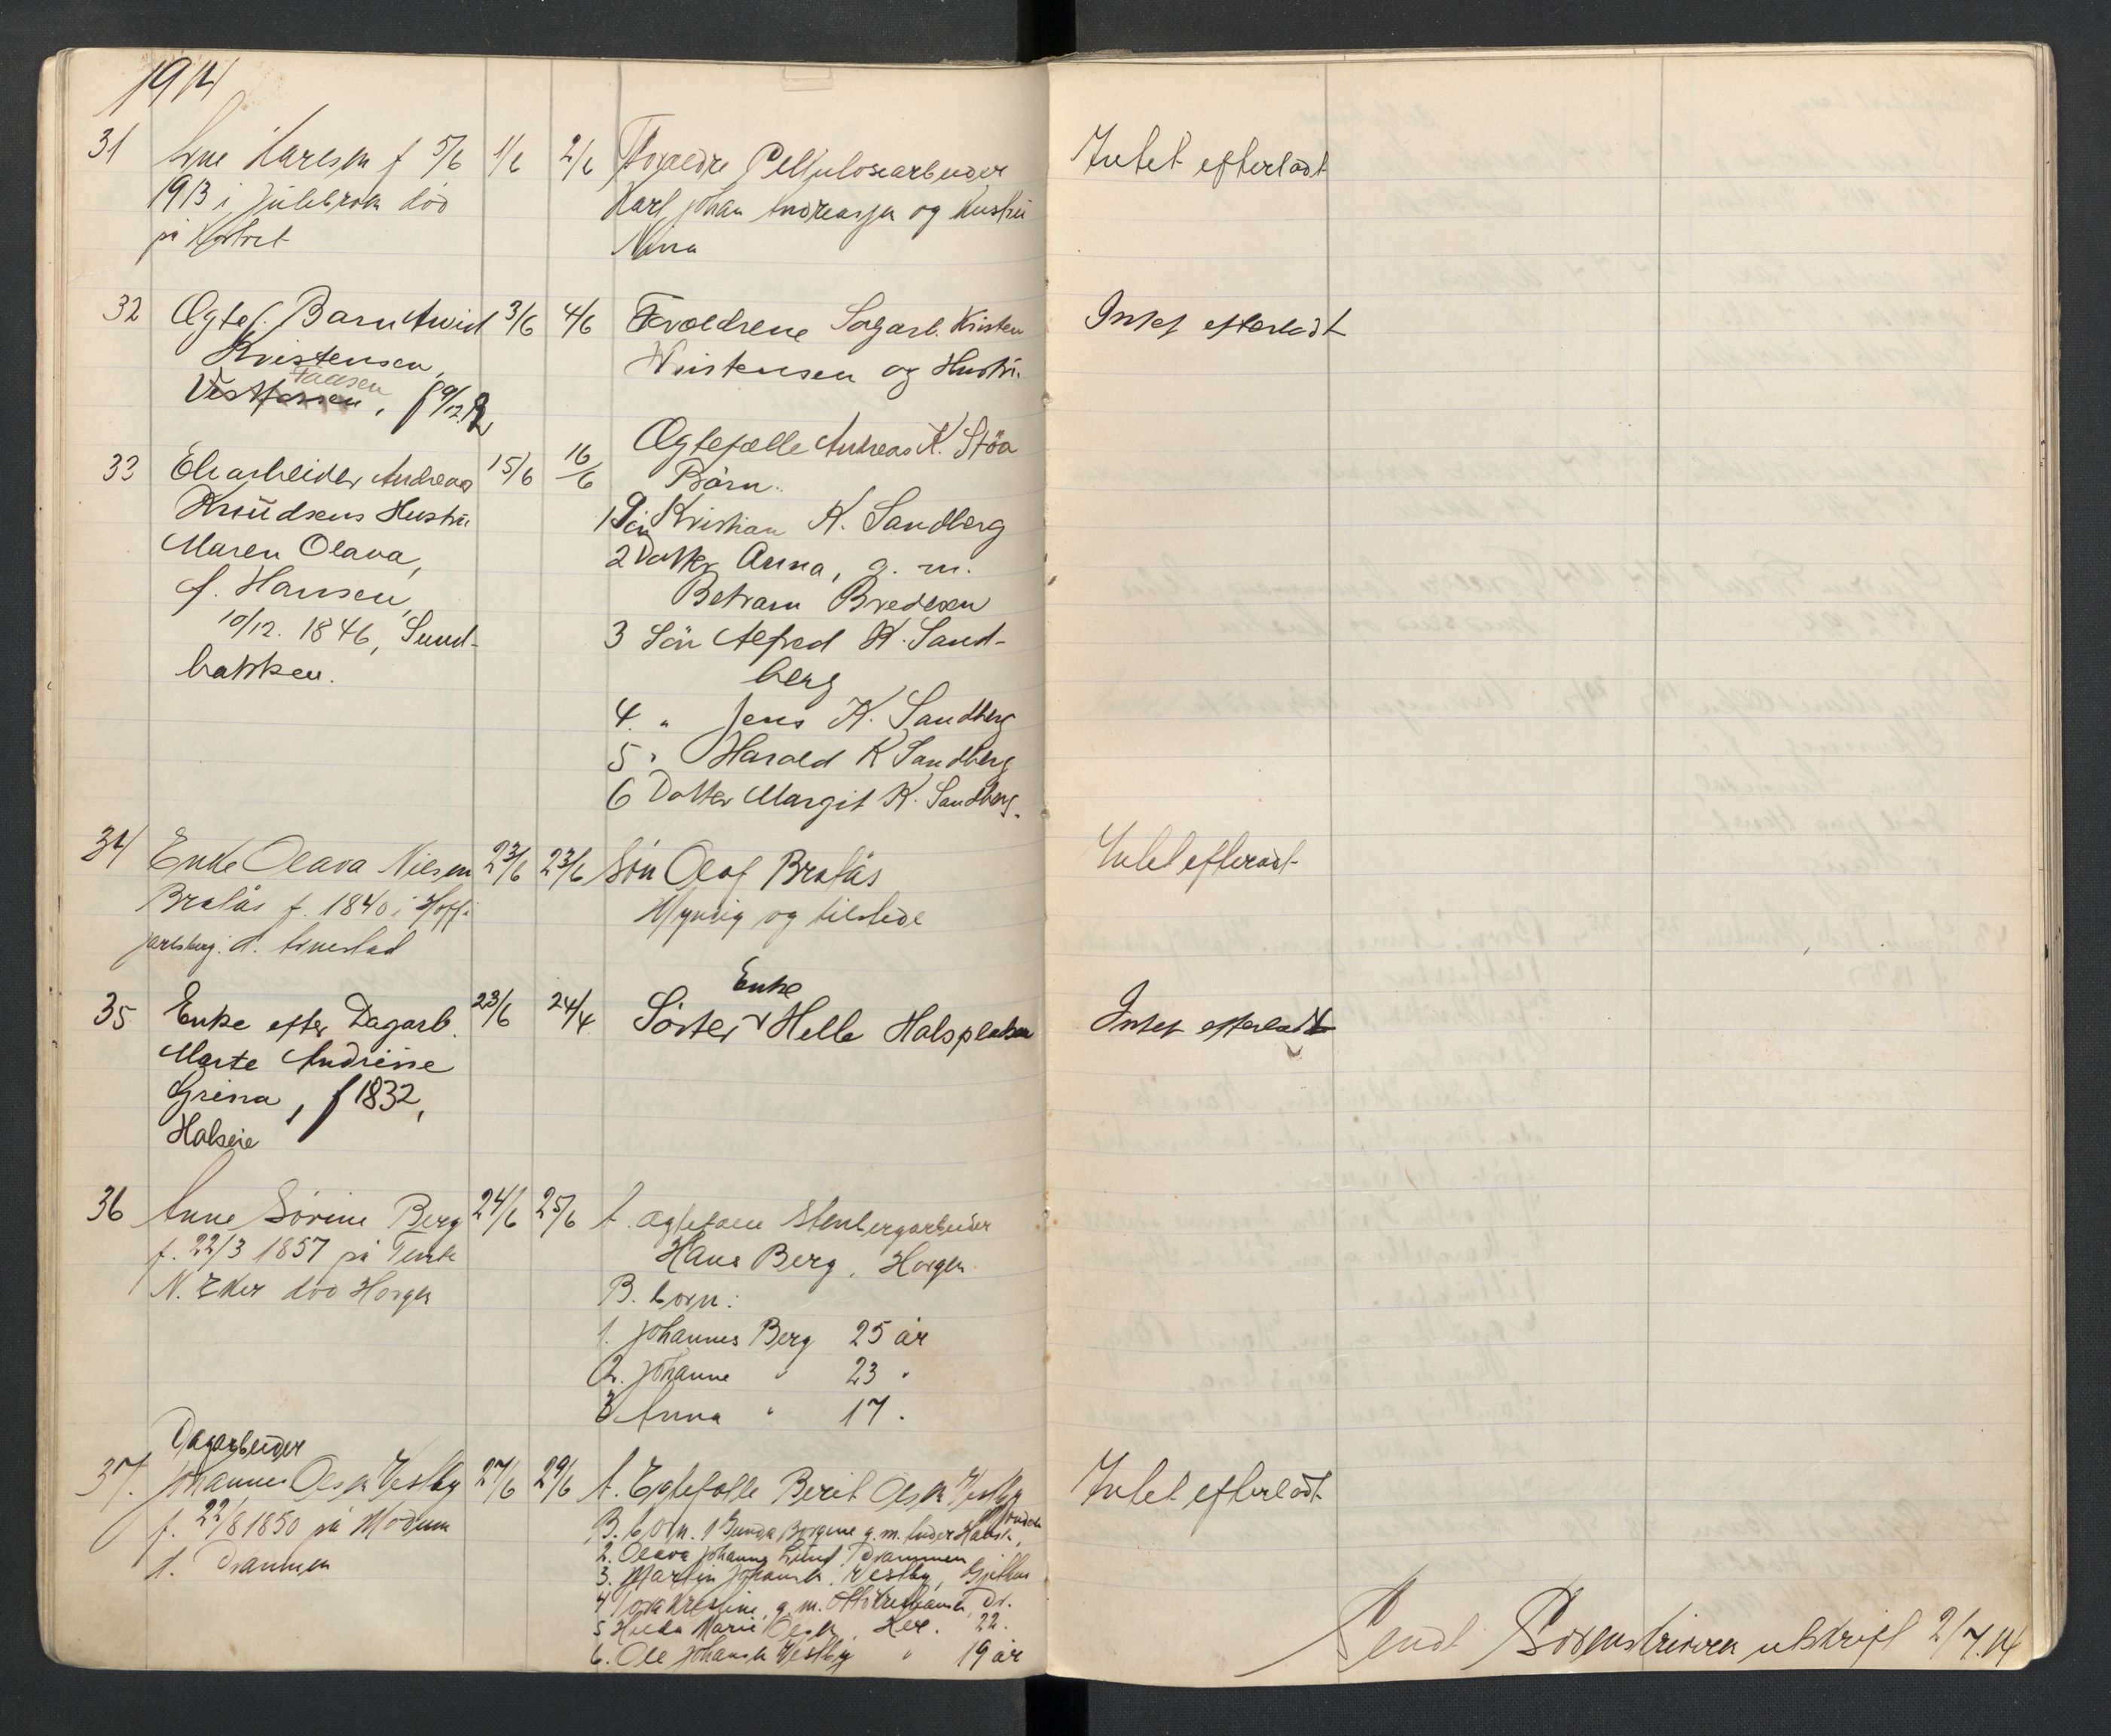 1914
31 Arne Karlsen f 5/6 1/6 2/6 Foræeldre Cellulosearbeider Intet efterladt
1913 i Julebrok död Karl Johan Andreassen og Hustru
på Hostvet Nina
32 Ægtef. Barn Arvid 3/6 4/6 Forældrene Sagarb. Kristen Intet efterladt
Kristensen, Kristensen og Hustru
Vestfossen, f 9/12.12
33 Elvarbeider Andreas 15/6 16/6 Ægtefælle Andreas K. Stöa
Knudsens Hustru Börn.
Maren Olava, 1 Sön Kristian K. Sandberg
f. Hansen, 2 Datter Anna, g. m.
10/12. 1846, Sund- Betram Bredesen
bakken. 3 Sön Alfred K. Sand-
berg
4. " Jens K. Sandberg
5 " Harald K Sandberg
6 Datter Margit K. Sandberg.
34 Enke Olava Nilsen 23/6 23/6 Sön Olaf Bratås Intet efterladt
Bratås f. 1840 i Hoff i Myndig og tilstede
Jarlsberg. d.
35 Enke efter Dagarb. 23/6 24/4 Enke
Söster Helle Halsplassen Intet efterladt
Marte Andrine
Grina, f 1832,
Halseie
36 Anne Sörine Berg 24/6 25/6 A. Ægtefælle Stenbergarbeider
f. 22/3 1857 på Hans Berg, Horgen
N. Eker död Horgen B. börn:
1. Johannes Berg 25 år
2. Johanne " 23 "
3 Anna " 17 "
Dagarbeider
37. Johannes Olsen Vestby 27/6 29/6 A. Egtefælle Berit Olsen Vestby Intet efterladt
f. 22/8 1850 på Modum B. börn. 1 Gunda Borgine g. m.
d. Drammen 2. Olava Johanne Lund, Drammen
3. Martin Johansen Vestby, Gjethus
4 g. m. Dr.
5 Hilda Marie Olsen. 22.
6. Ole Johansen Vestby " 19 år
Sendt Sorenskriveren utskrift 2/7.14